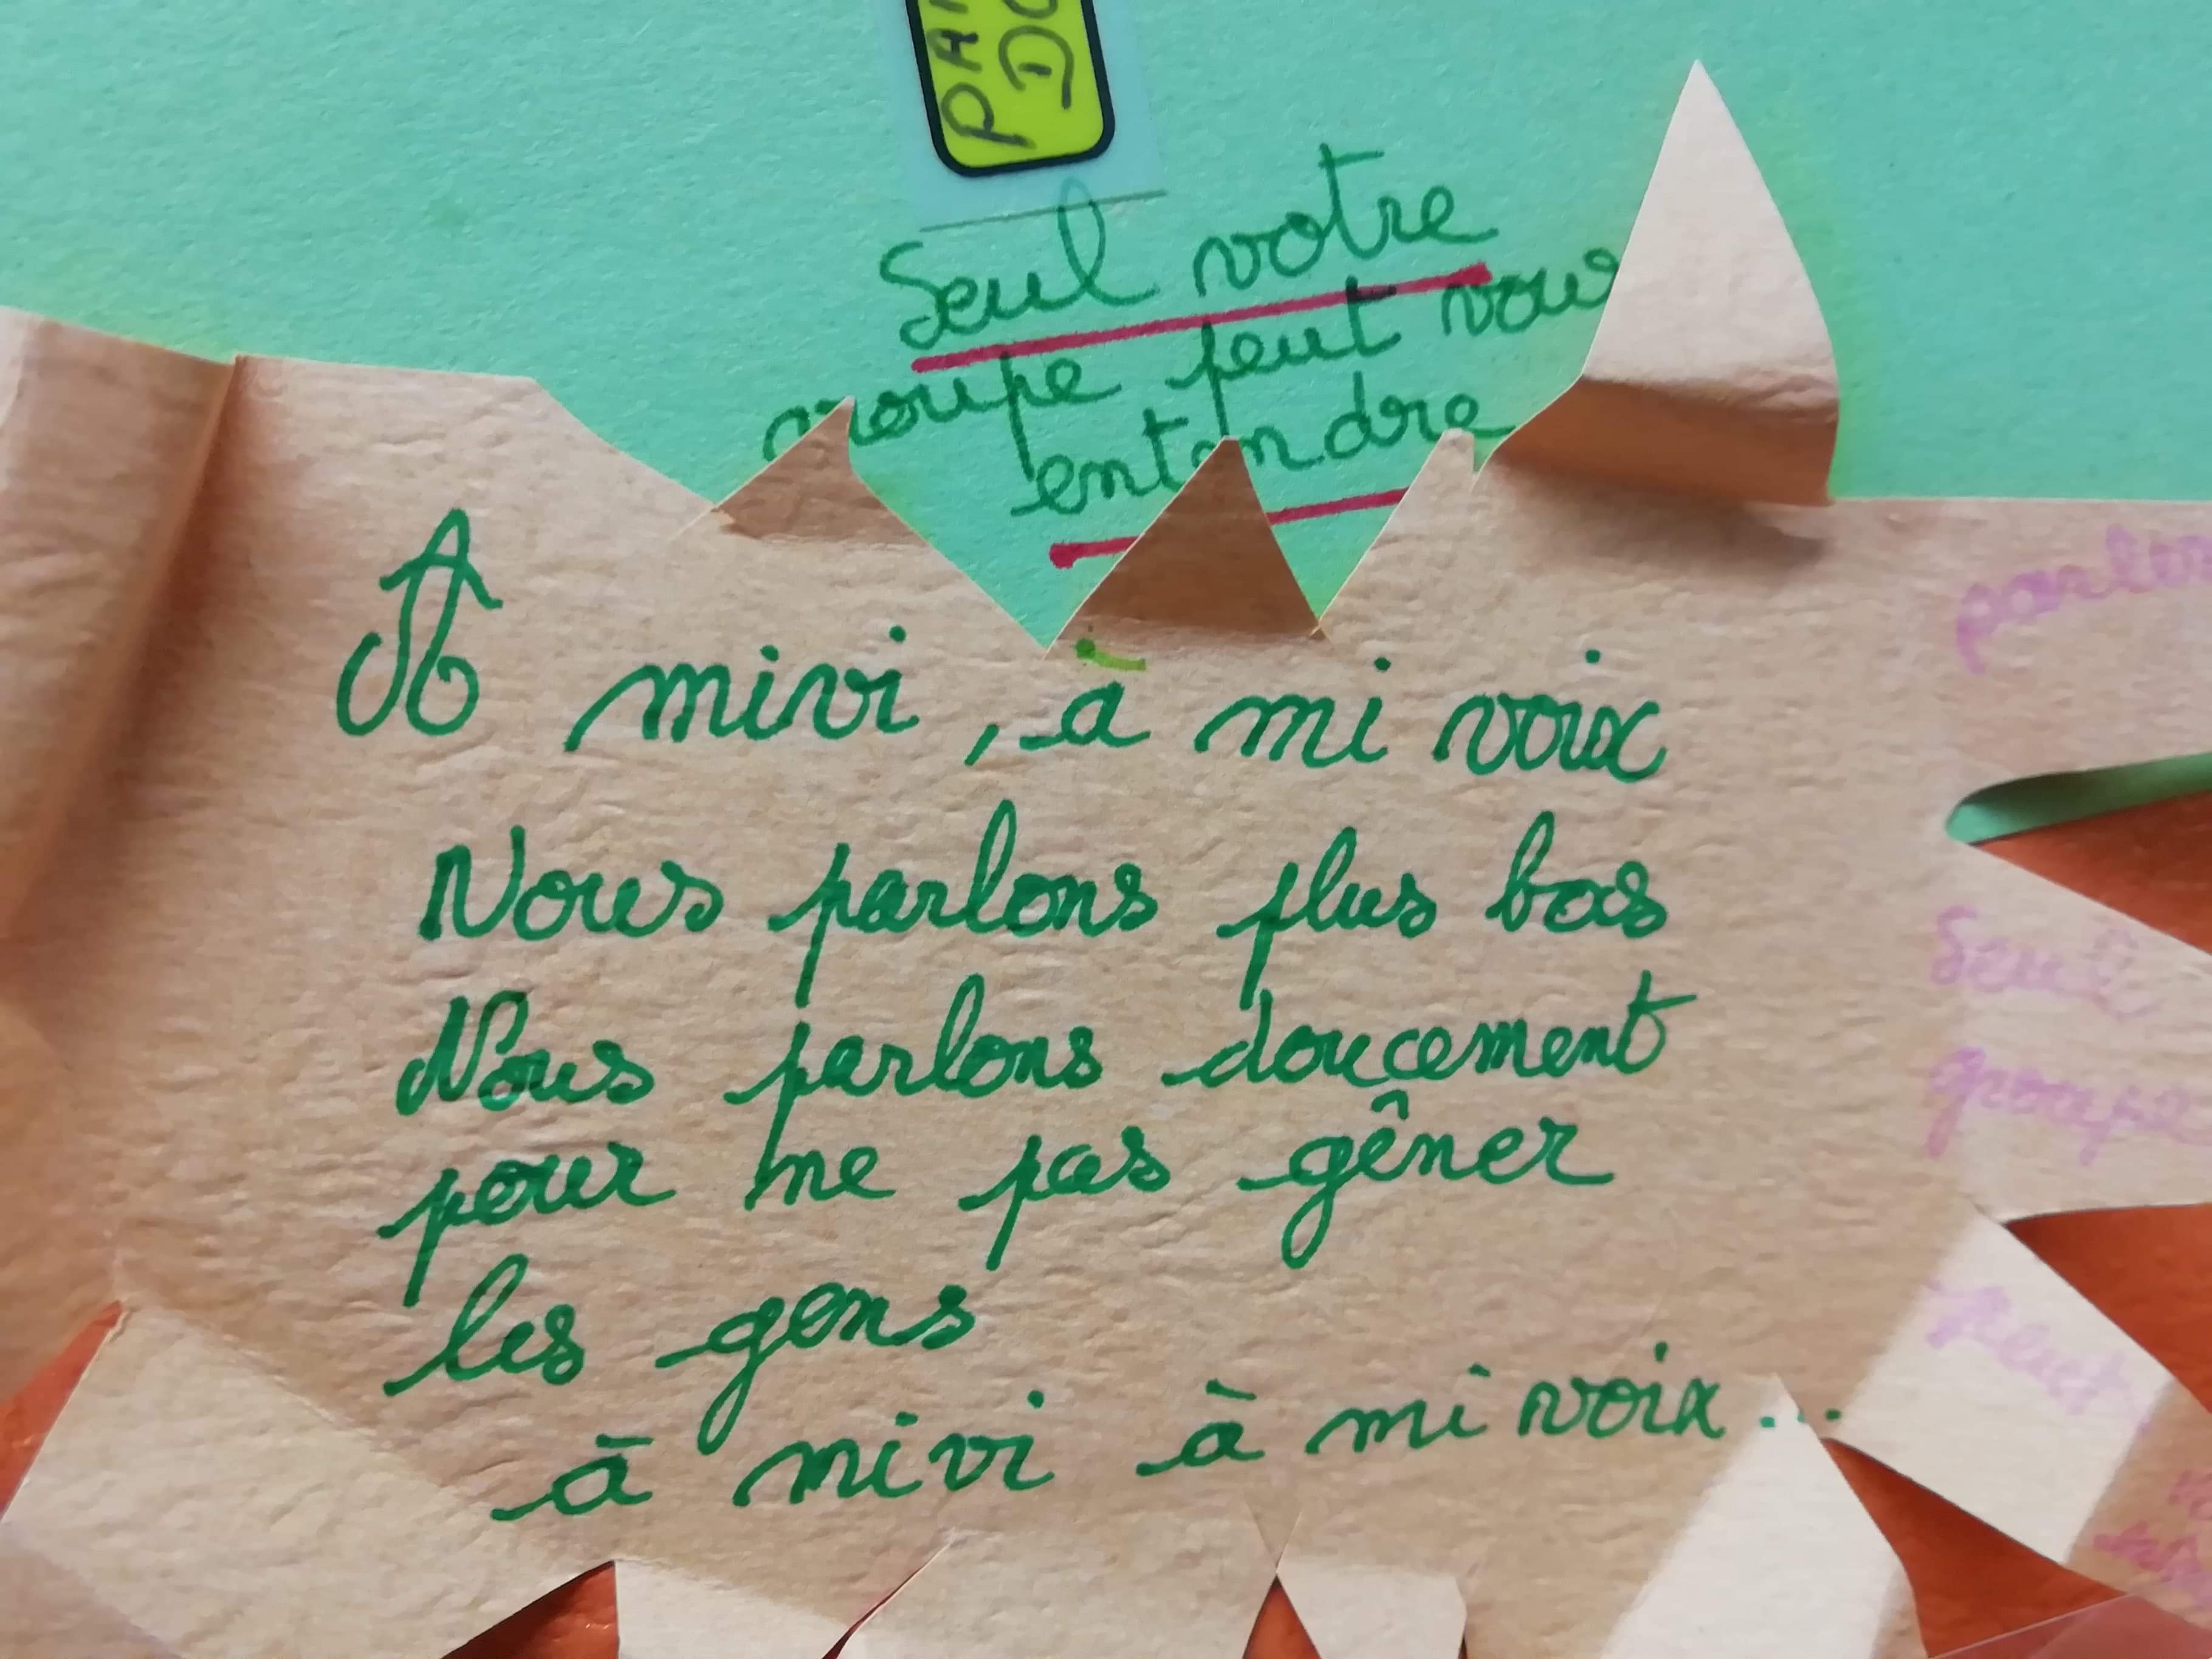 Seul votre
groupe peut vous
entendre
À mivi, à mi voix
Nous parlons plus bas
Nous parlons doucement
pour ne pas gêner
les gens
à mivi à mi voix...
groupe
peut